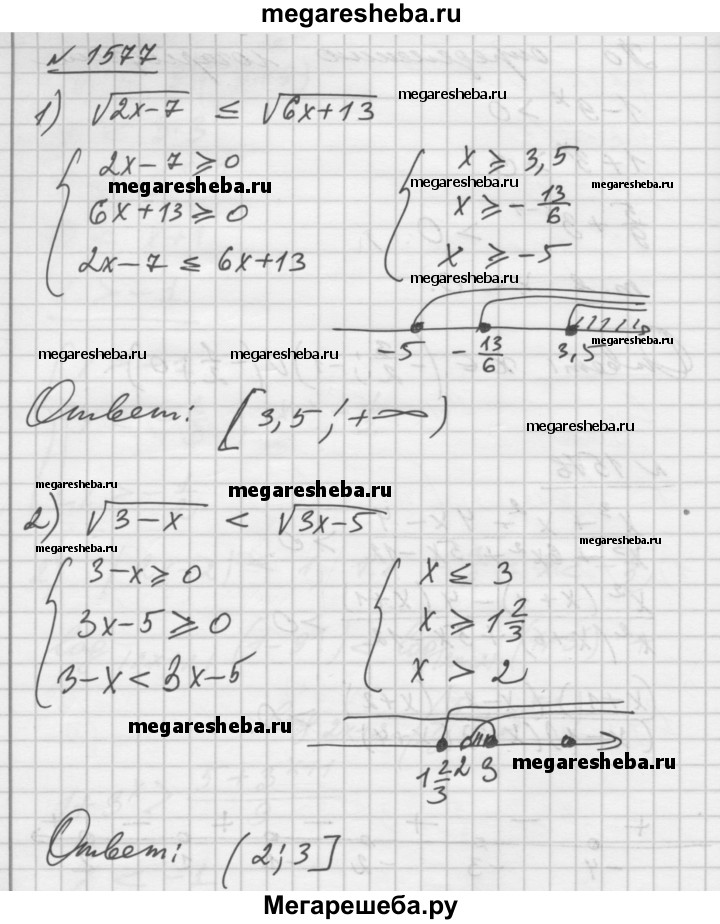 megaresheba.ru
№ 1577
1) √(2x-7) ≤ √(6x+13)
megaresheba.ru
2x-7 ≥ 0
x ≥ 3,5
megaresheba.ru
megaresheba.ru
megaresheba.ru
6x+13 ≥ 0
x ≥ -13/6
2x-7 ≤ 6x+13
x ≥ -5
megaresheba.ru
megaresheba.ru
-5 -13/6 3,5
megaresheba.ru
megaresheba.ru
Ответ: [3,5; +∞)
megaresheba.ru
megaresheba.ru
megaresheba.ru
2) √(3-x) < √(3x-5)
megaresheba.ru
megaresheba.ru
3-x ≥ 0
x ≤ 3
3x-5 ≥ 0
x ≥ 1 2/3
3-x < 3x-5
x > 2
megaresheba.ru
1 2/3 2 3
megaresheba.ru
Ответ: (2; 3]
Мегарешеба.ру